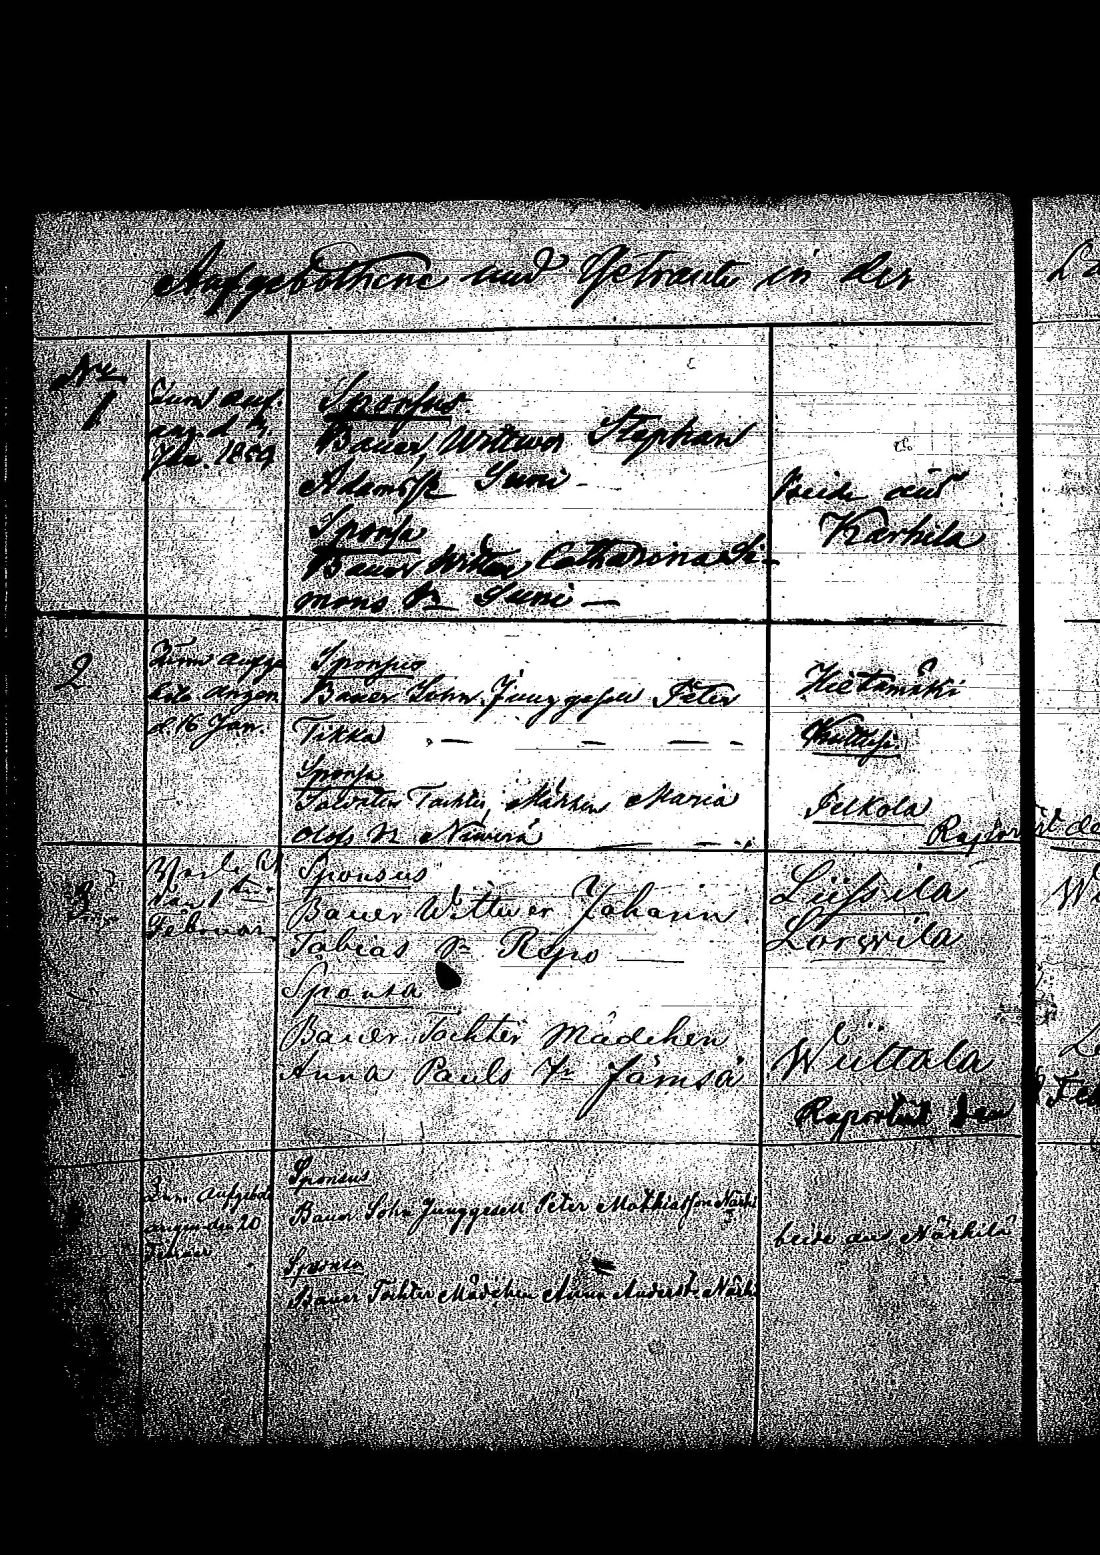 Aufgebothene und Getraute in der
No
1
Zum auf
Jan. 1859
Sponsus
Bauer, Wittwer Stephan
Adamssn Suni
Sponsa
Bauer Wittwe Catharina Si-
mons Tr Suni —
Beide aus
Karhila
2
Zum aufge
bote angen
d. 16 Jan.
Sponsus
Bauer Sohn Junggesell Peter
Tikka — — — -
Sponsa
Soldaten Tochter, Mädchen Maria
Olofs Tr
Hietamäki
Pelkola
Raportirt
3
den 1ten
Februar
Sponsus
Bauer Wittwer Johann
Tobias Sn Repo —
Sponsa
Bauer Tochter Mädchen
Anna Pauls Tr Jämsä
Lüssila
Lorwila
Wüttala
Raportirt den
Zum Aufgebote
angen den 20
Februar
Sponsus
Bauer Sohn Junggesell Peter Mathiasson Närhi
Sponsa
Bauer Tochter Mädchen Anna Anderst. Närhi
beide aus Närhilä